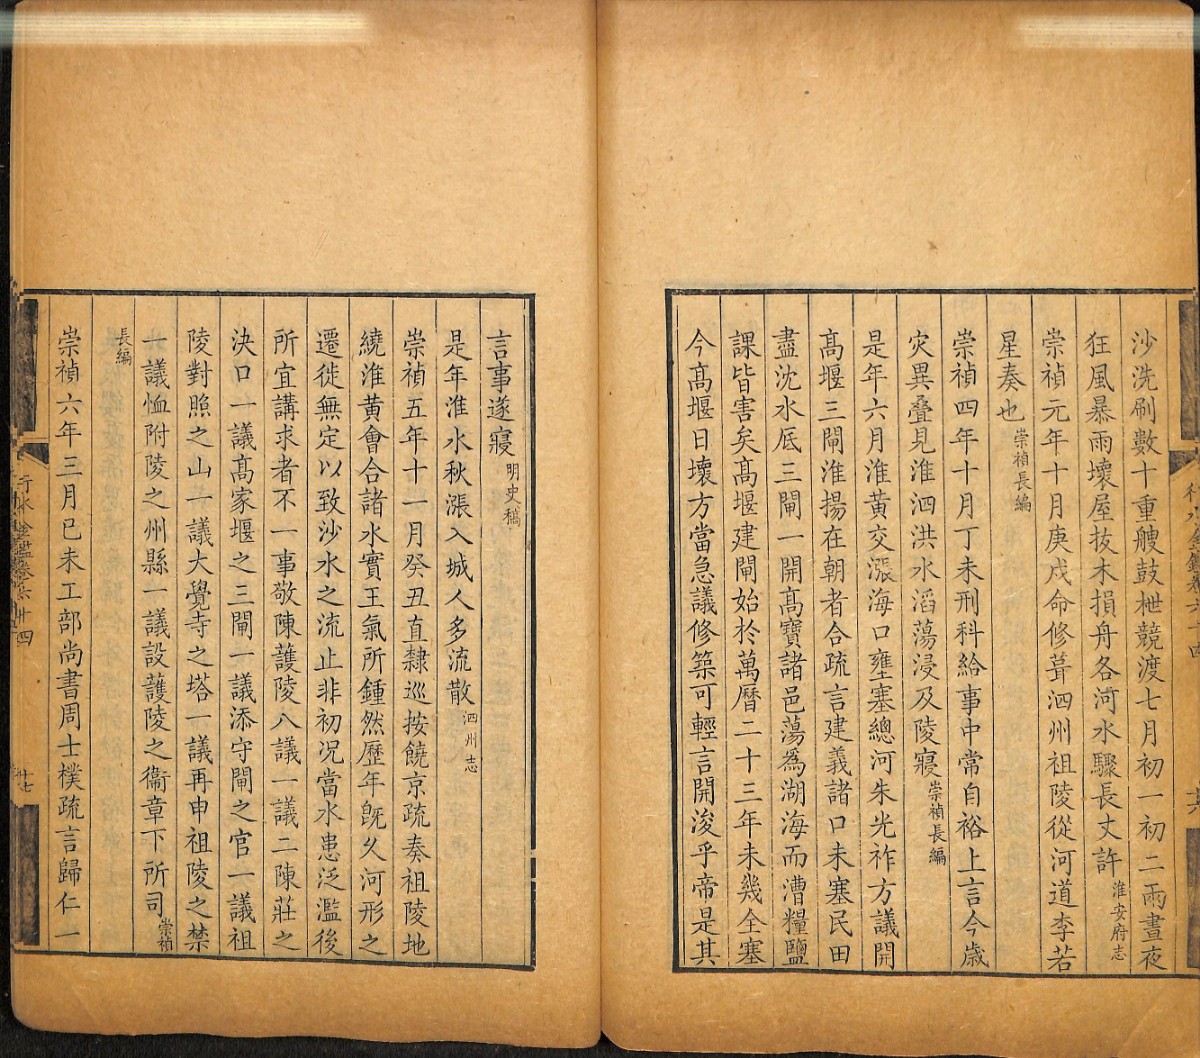 沙洗刷數十重艘鼓枻競渡七月初一初二雨晝夜
狂風暴雨壞屋拔木損舟各河水驟長丈許淮安府志
崇禎元年十月庚戌命修葺泗州祖陵從河道李若
星奏也崇禎長編
崇禎四年十月丁未刑科給事中常自裕上言今歲
灾異疊見淮泗洪水滔蕩浸及陵寢崇禎長編
是年六月淮黃交漲海口壅塞總河朱光祚方議開
高堰三閘淮揚在朝者合疏言建義諸口未塞民田
盡沈水底三閘一開高寶諸邑蕩爲湖海而漕糧鹽
課皆害矣高堰建閘始於萬曆二十三年未幾全塞
今高堰日壞方當急議修築可輕言開浚乎帝是其
言事遂寢明史稿
是年淮水秋漲入城人多流散泗州志
崇禎五年十一月癸丑直隸巡按饒京疏奏祖陵地
繞淮黃會合諸水實王氣所鍾然歷年旣久河形之
遷徙無定以致沙水之流止非初况當水患泛濫後
所宜講求者不一事敬陳護陵八議一議二陳莊之
決口一議高家堰之三閘一議添守閘之官一議祖
陵對照之山一議大覺寺之塔一議再申祖陵之禁
一議恤附陵之州縣一議設護陵之衞章下所司崇禎
長編
崇禎六年三月巳未工部尚書周士樸疏言歸仁一
行水金鑑卷六十四
廿七